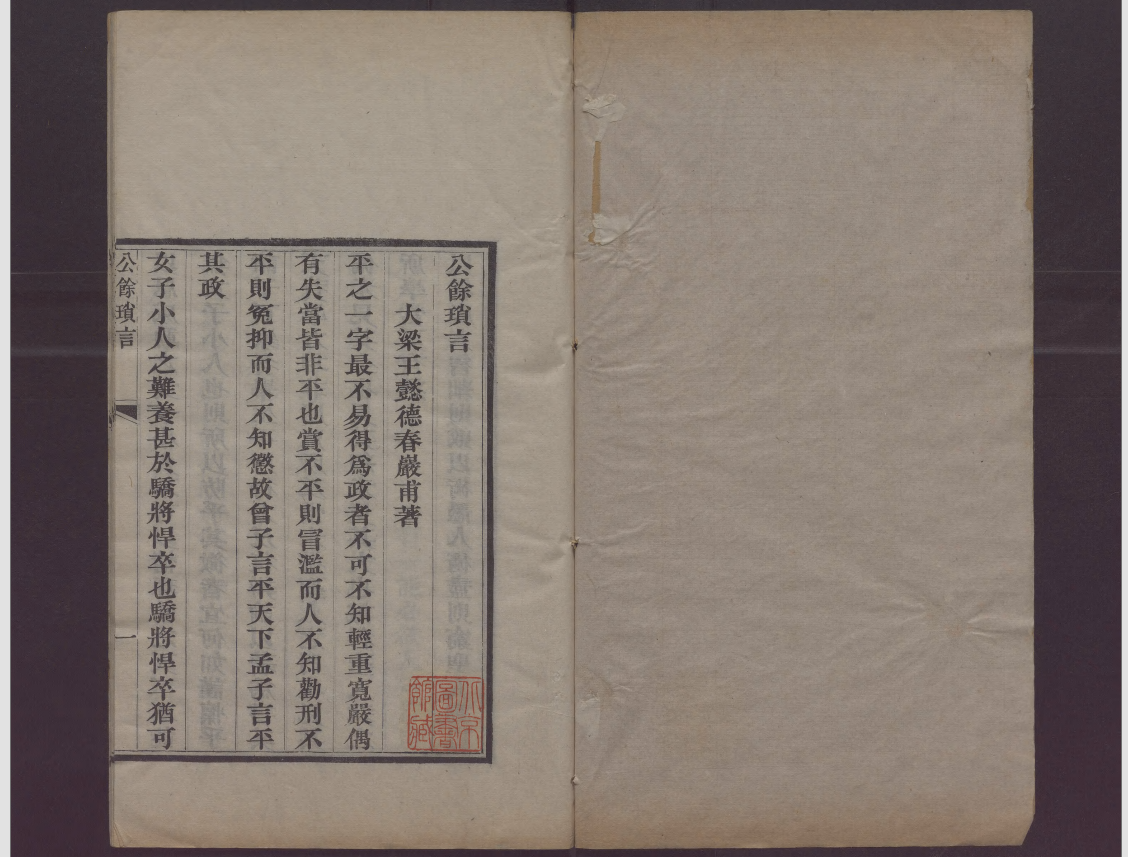 公餘瑣言
大梁王懿德春巖甫著
平之一字最不易得爲政者不可不知輕重寬嚴偶
有失當皆非平也賞不平則冒濫而人不知勸刑不
平則冤抑而人不知懲故曾子言平天下孟子言平
其政
女子小人之難養甚於驕將悍卒也驕將悍卒猶可
公餘瑣言
一
北京
圖書
館藏